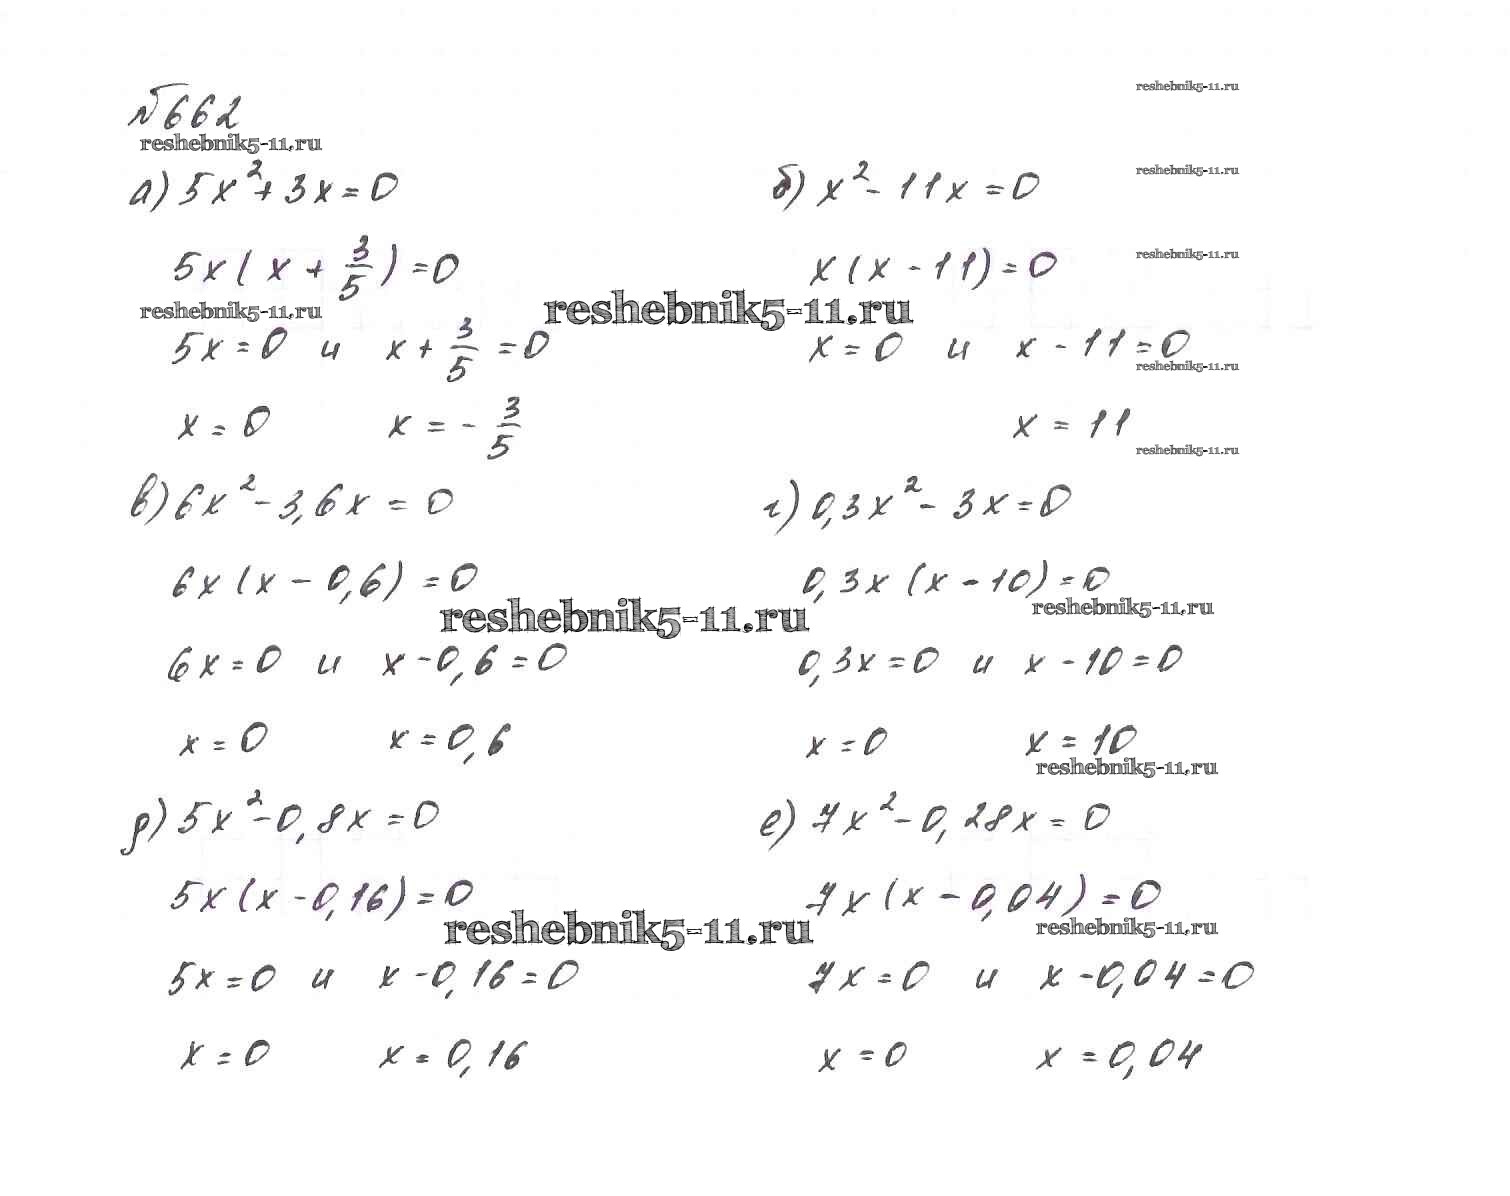 №662
reshebnik5-11.ru
reshebnik5-11.ru
а) 5x²+3x=0
б) x²-11x=0
reshebnik5-11.ru
5x(x+3/5)=0
x(x-11)=0
reshebnik5-11.ru
reshebnik5-11.ru
reshebnik5-11.ru
5x=0 и x+3/5=0
x=0 и x-11=0
reshebnik5-11.ru
x=0 x=-3/5
x=11
reshebnik5-11.ru
в) 6x²-3,6x=0
г) 0,3x²-3x=0
6x(x-0,6)=0
0,3x(x-10)=0
reshebnik5-11.ru
reshebnik5-11.ru
6x=0 и x-0,6=0
0,3x=0 и x-10=0
x=0 x=0,6
x=0 x=10
reshebnik5-11.ru
д) 5x²-0,8x=0
е) 7x²-0,28x=0
5x(x-0,16)=0
7x(x-0,04)=0
reshebnik5-11.ru
reshebnik5-11.ru
5x=0 и x-0,16=0
7x=0 и x-0,04=0
x=0 x=0,16
x=0 x=0,04